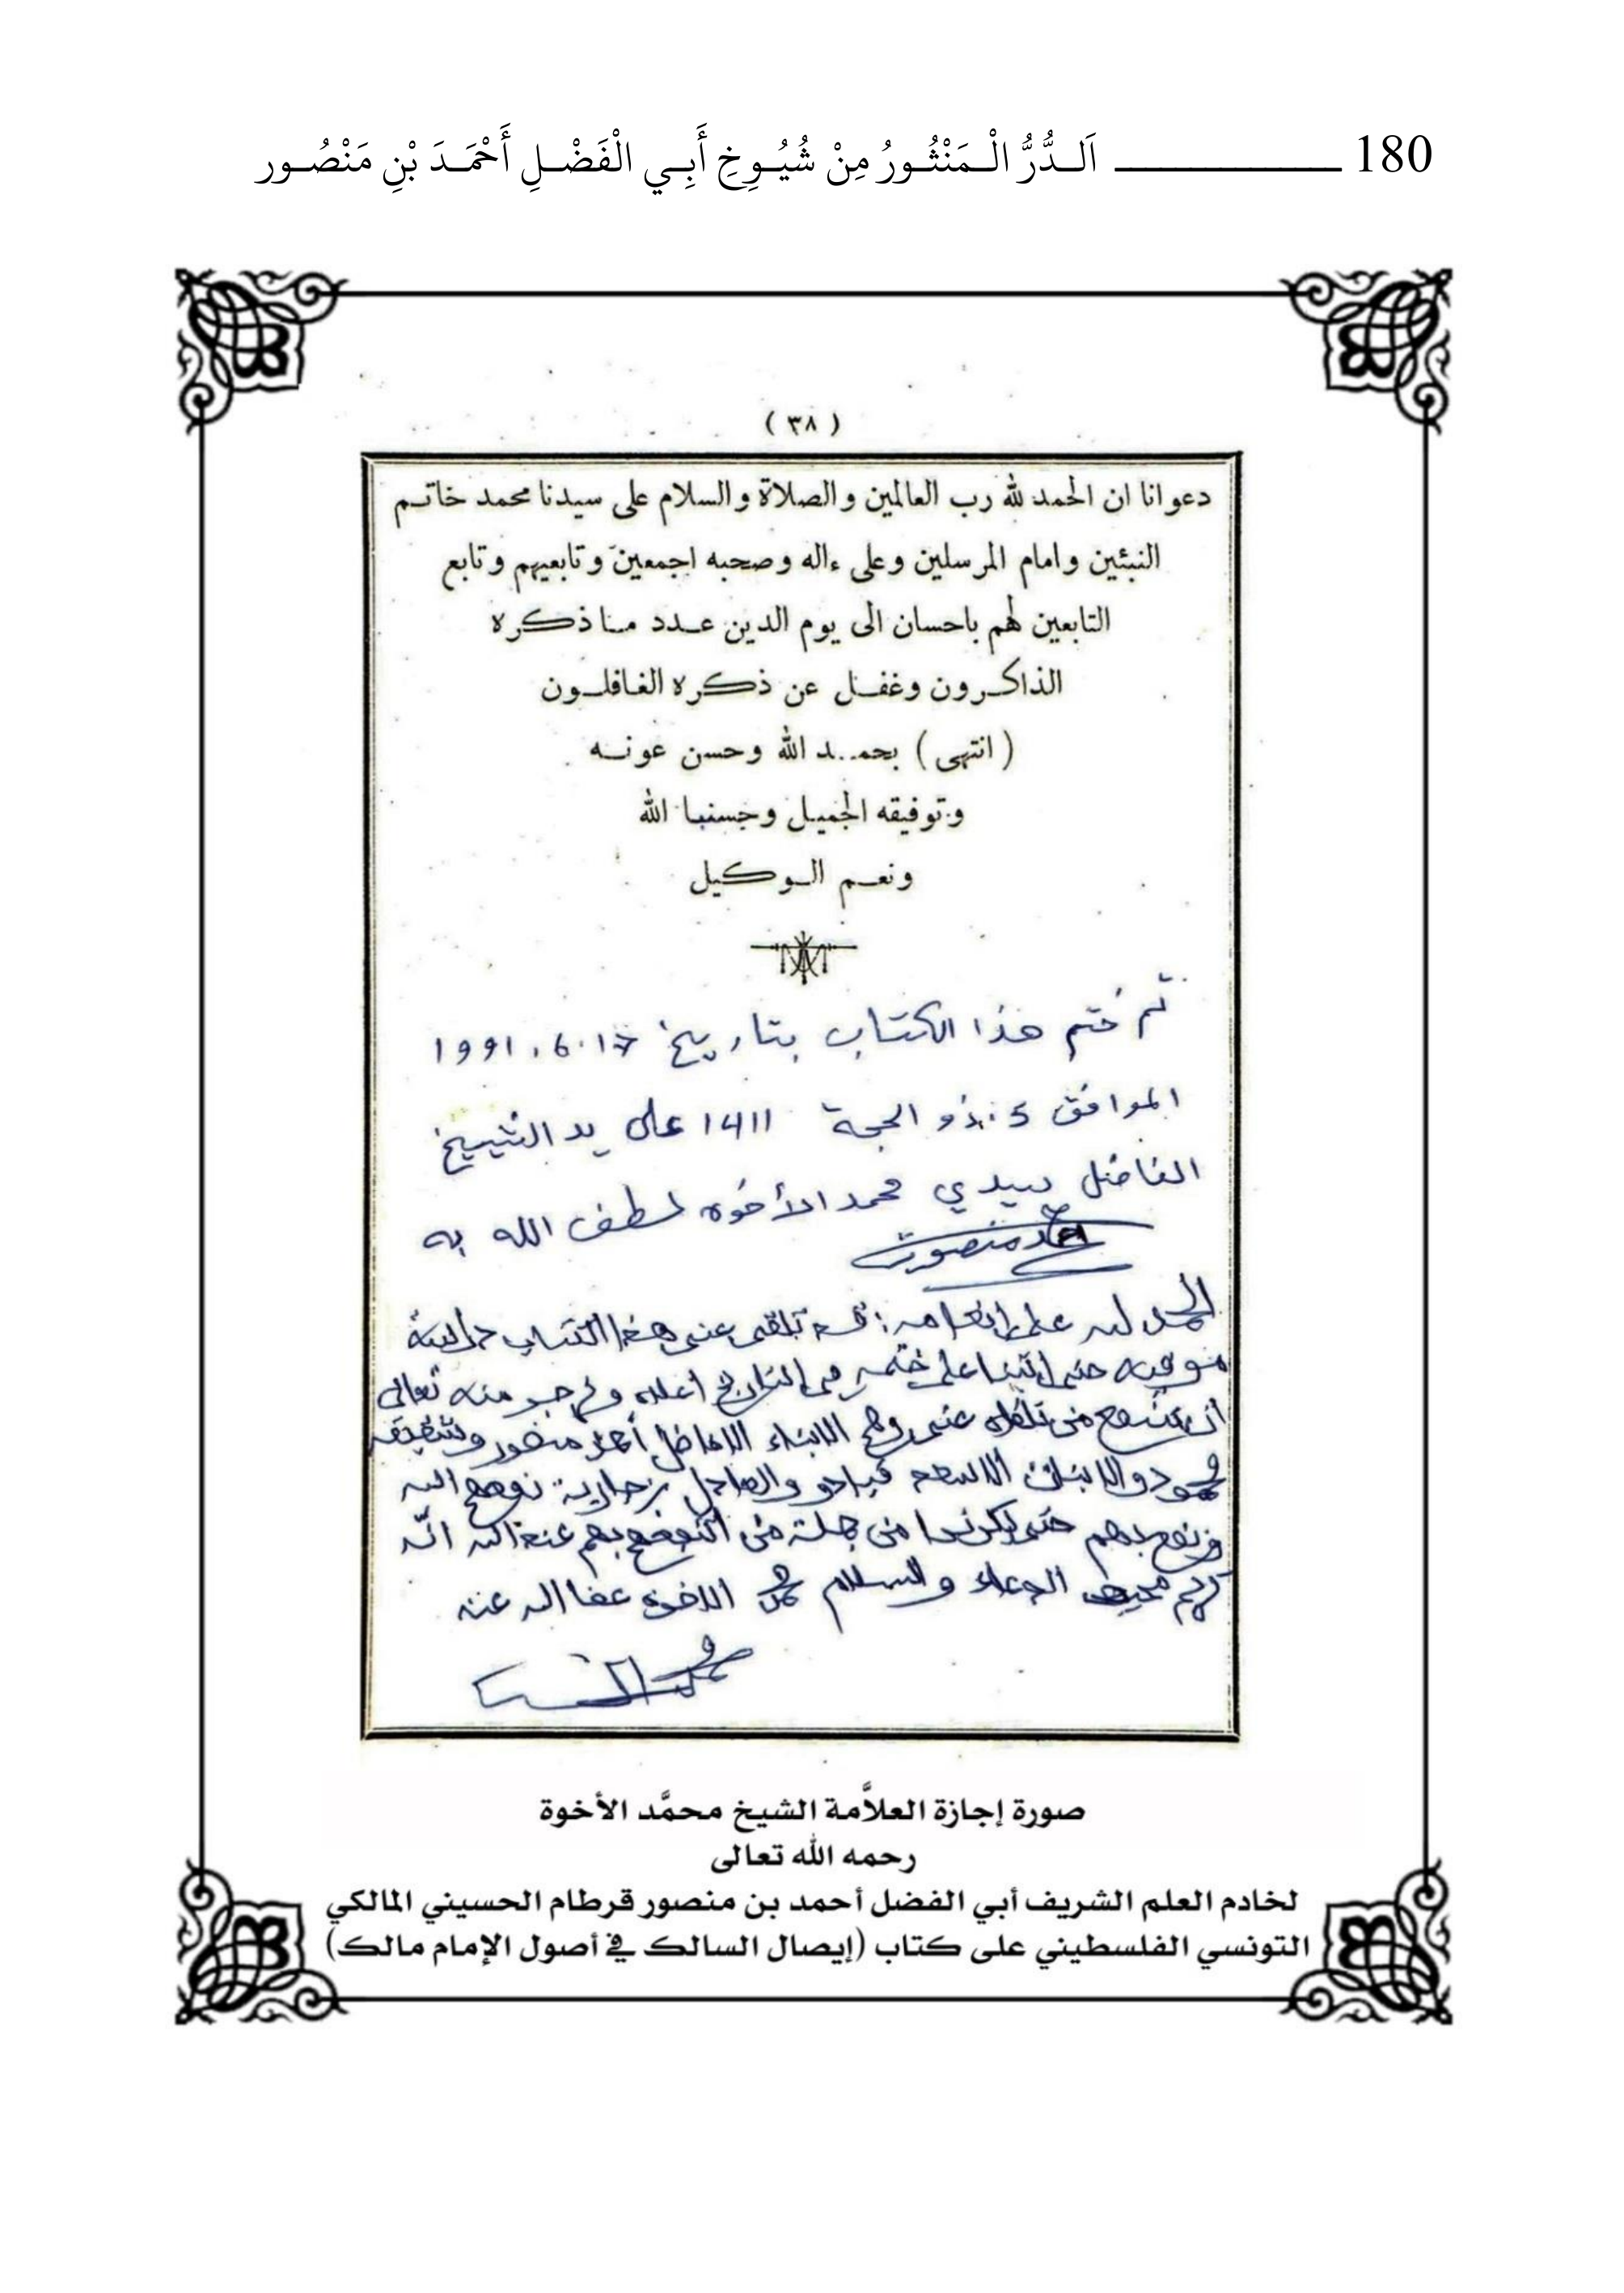 180 ـــــــــ اَلـدُّرُّ الْـمَنْثُـورُ مِنْ شُيُـوخِ أَبِـي الْفَضْـلِ أَحْمَـدَ بْنِ مَنْصُـور
( ٣٨ )
دعوانا ان الحمد لله رب العالمين والصلاة والسلام على سيدنا محمد خاتم
النبئين وامام المرسلين وعلى ءاله وصحبه اجمعين وتابعيهم وتابع
التابعين لهم باحسان الى يوم الدين عدد ما ذكره
الذاكرون وغفل عن ذكره الغافلون
( انتهى ) بحمد الله وحسن عونه
وتوفيقه الجميل وحسبنا الله
ونعم الوكيل
تم ختم هذا الكتاب بتاريخ 17.6.1991
الموافق 5 ذو الحجة 1411 على يد الشيخ
الفاضل سيدي محمد الأخوه لطف الله به
أحمد منصور
الحمد لله على إنعامه: قد تلقى عني هذا الكتاب دراسة
حتى أتينا على ختمه في التاريخ أعلاه ونرجو منه تعالى
أن ينفع من تلقاه عني وهم الابناء الافاضل أحمد منصور وشقيقه
محمود والابنان الاسعد والعادل نفعهم الله
ونفع بهم حتى يكونوا من جملة من انتفع بهم عند الله انه
كريم مجيب الدعاء والسلام محمد الاخوه عفا الله عنه
صورة إجازة العلاَّمة الشيخ محمَّد الأخوة
رحمه الله تعالى
لخادم العلم الشريف أبي الفضل أحمد بن منصور قرطام الحسيني المالكي
التونسي الفلسطيني على كتاب (إيصال السالك في أصول الإمام مالك)